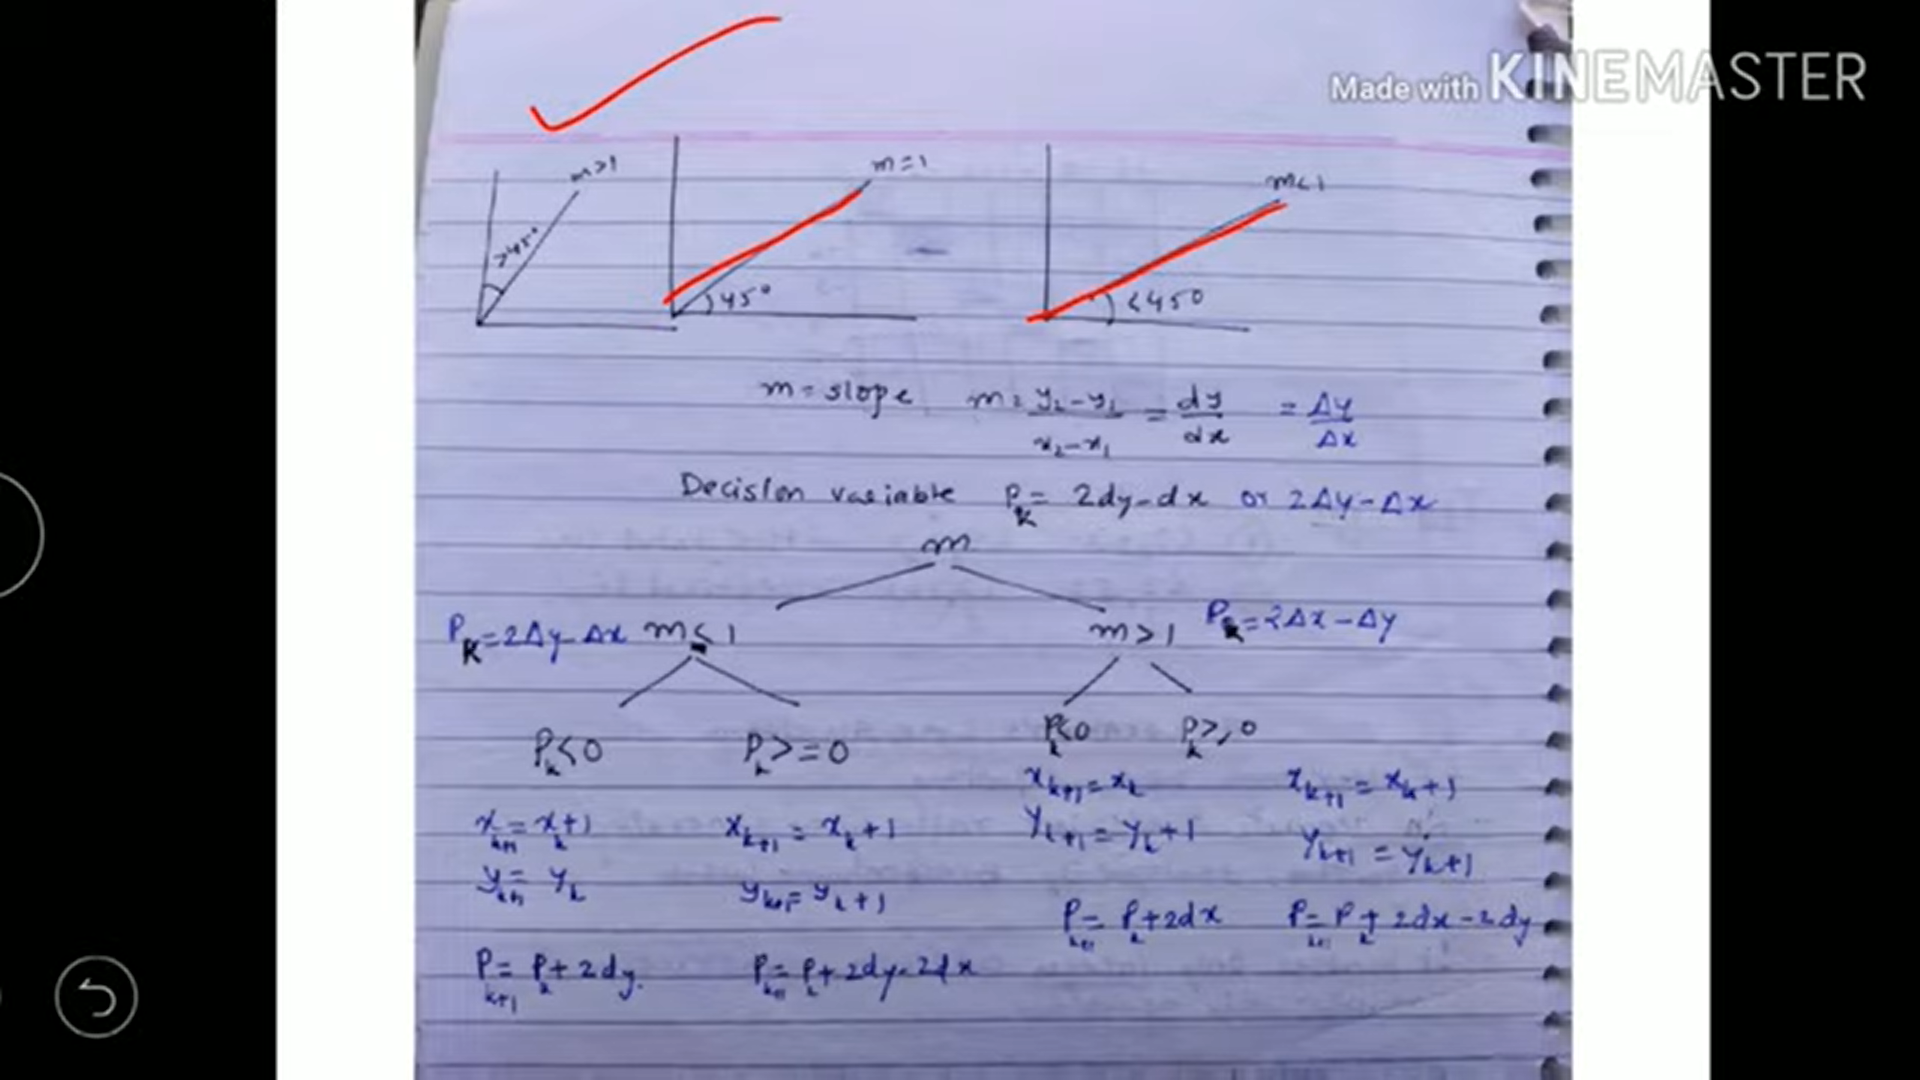 Made with KINEMASTER
m>1
m=1
m<1
>45°
45°
<45°
m=slope m= y₂-y₁/x₂-x₁ = dy/dx = Δy/Δx
Decision variable Pₖ= 2dy-dx or 2Δy-Δx
m
Pₖ=2Δy-Δx m<1 m>1 Pₖ=2Δx-Δy
Pₖ<0 Pₖ>=0 Pₖ<0 Pₖ>,0
xₖ₊₁=xₖ xₖ₊₁=xₖ+1
xₖ₊₁=xₖ+1 xₖ₊₁=xₖ+1 yₖ₊₁=yₖ+1 yₖ₊₁=yₖ+1
yₖ₊₁=yₖ yₖ₊₁=yₖ+1
Pₖ₊₁=Pₖ+2dx Pₖ₊₁=Pₖ+2dx-2dy
Pₖ₊₁=Pₖ+2dy. Pₖ₊₁=Pₖ+2dy-2dx